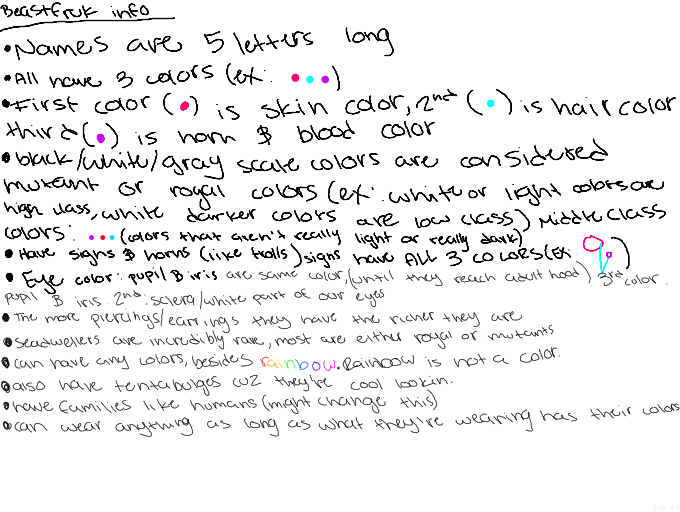 Beastfruk info
•Names are 5 letters long
•All have 3 colors (ex: •••)
•First color (•) is skin color, 2nd (•) is hair color
third (•) is horn & blood color
•black/white/gray scale colors are considered
mutant or royal colors (ex: white or light colors are
high class, white darker colors are low class) Middle class
colors: ••• (colors that aren't really light or really dark)
•Have signs & horns (like trolls) signs have ALL 3 COLORS (Ex:
•Eye color: pupil & iris are same color, (until they reach adult hood) 3rd color:
pupil & iris. 2nd: sclera/white part of our eyes
•The more piercings/earrings they have the richer they are
•Seadwellers are incredibly rare, most are either royal or mutants
•can have any colors, besides rainbow. Rainbow is not a color.
•also have tentabulges cuz they're cool lookin.
•have families like humans (might change this)
•can wear anything as long as what they're wearing has their colors